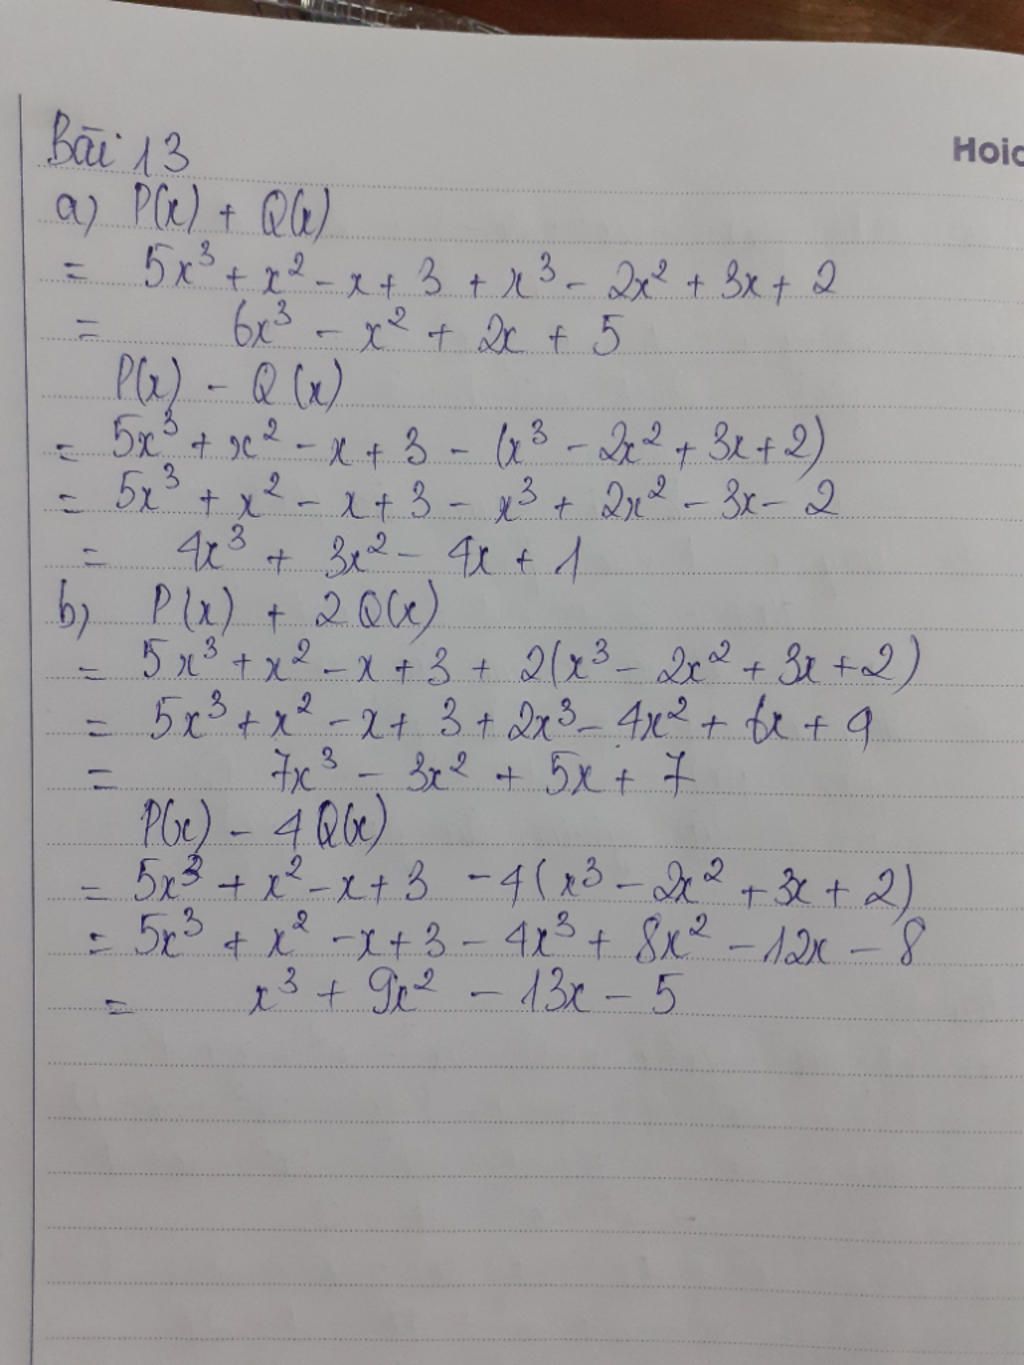 Bài 13
Hoic
a) P(x) + Q(x)
= 5x³ + x² - x + 3 + x³ - 2x² + 3x + 2
= 6x³ - x² + 2x + 5
P(x) - Q(x)
= 5x³ + x² - x + 3 - (x³ - 2x² + 3x + 2)
= 5x³ + x² - x + 3 - x³ + 2x² - 3x - 2
= 4x³ + 3x² - 4x + 1
b) P(x) + 2Q(x)
= 5x³ + x² - x + 3 + 2(x³ - 2x² + 3x + 2)
= 5x³ + x² - x + 3 + 2x³ - 4x² + 6x + 4
= 7x³ - 3x² + 5x + 7
P(x) - 4Q(x)
= 5x³ + x² - x + 3 - 4(x³ - 2x² + 3x + 2)
= 5x³ + x² - x + 3 - 4x³ + 8x² - 12x - 8
= x³ + 9x² - 13x - 5